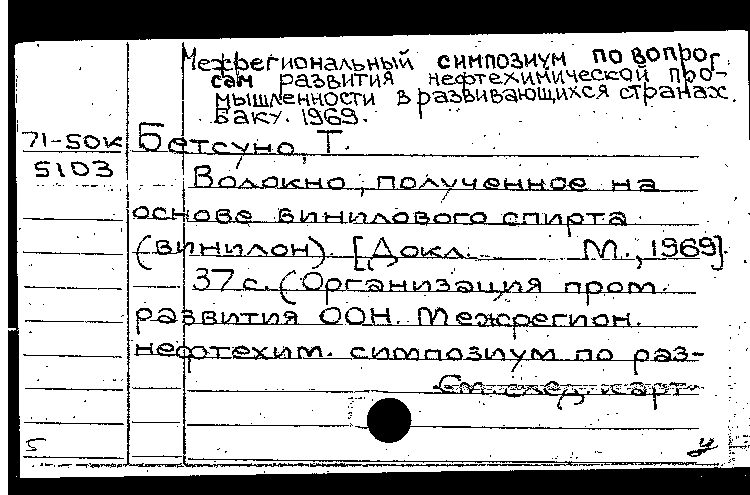 Межрегиональный симпозиум по вопро-
сам развития нефтехимической про-
мышленности в развивающихся странах.
Баку. 1969.
71-50К Бетсуно, Т.
5103 Волокно, полученное на
основе винилового спирта
(винилон). [Докл. М., 1969].
37 с. (Организация пром.
развития ООН. Межрегион.
нефтехим. симпозиум по раз-
См. след. карт.
5 ч